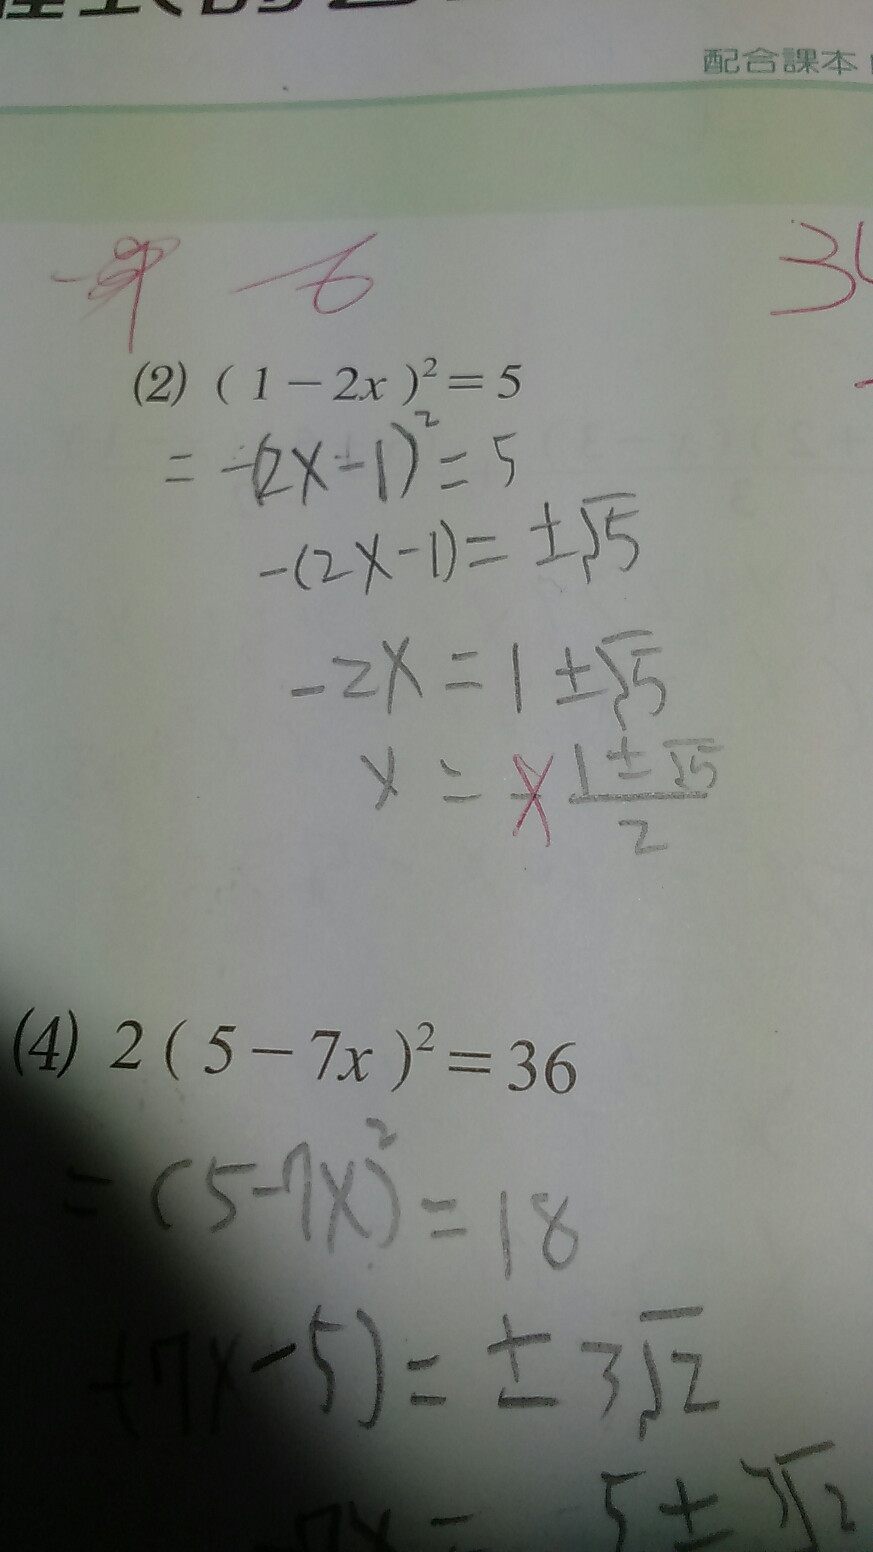 配合課本
- 6
(2) ( 1 - 2x )² = 5
= -(2x-1)² = 5
-(2x-1) = ±√5
-2x = 1 ±√5
x = - 1±√5 / 2
(4) 2 ( 5 - 7x )² = 36
= (5-7x)² = 18
-(7x-5) = ± 3√2